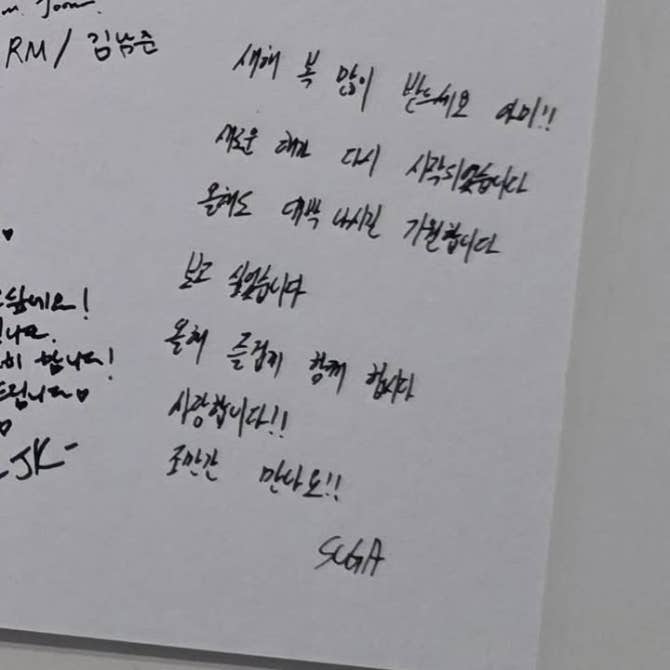 m. Joon.
RM / 김남준
새해 복 많이 받으세요 아미!!
새로운 해가 다시 시작되었습니다
올해도 대박 나시길 기원합니다
보고 싶었습니다
올해 즐겁게 함께 합시다
사랑합니다!!
조만간 만나요!!
SUGA
♥
JK-